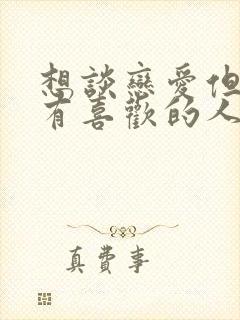 想談戀愛但
有喜歡的人
真費事